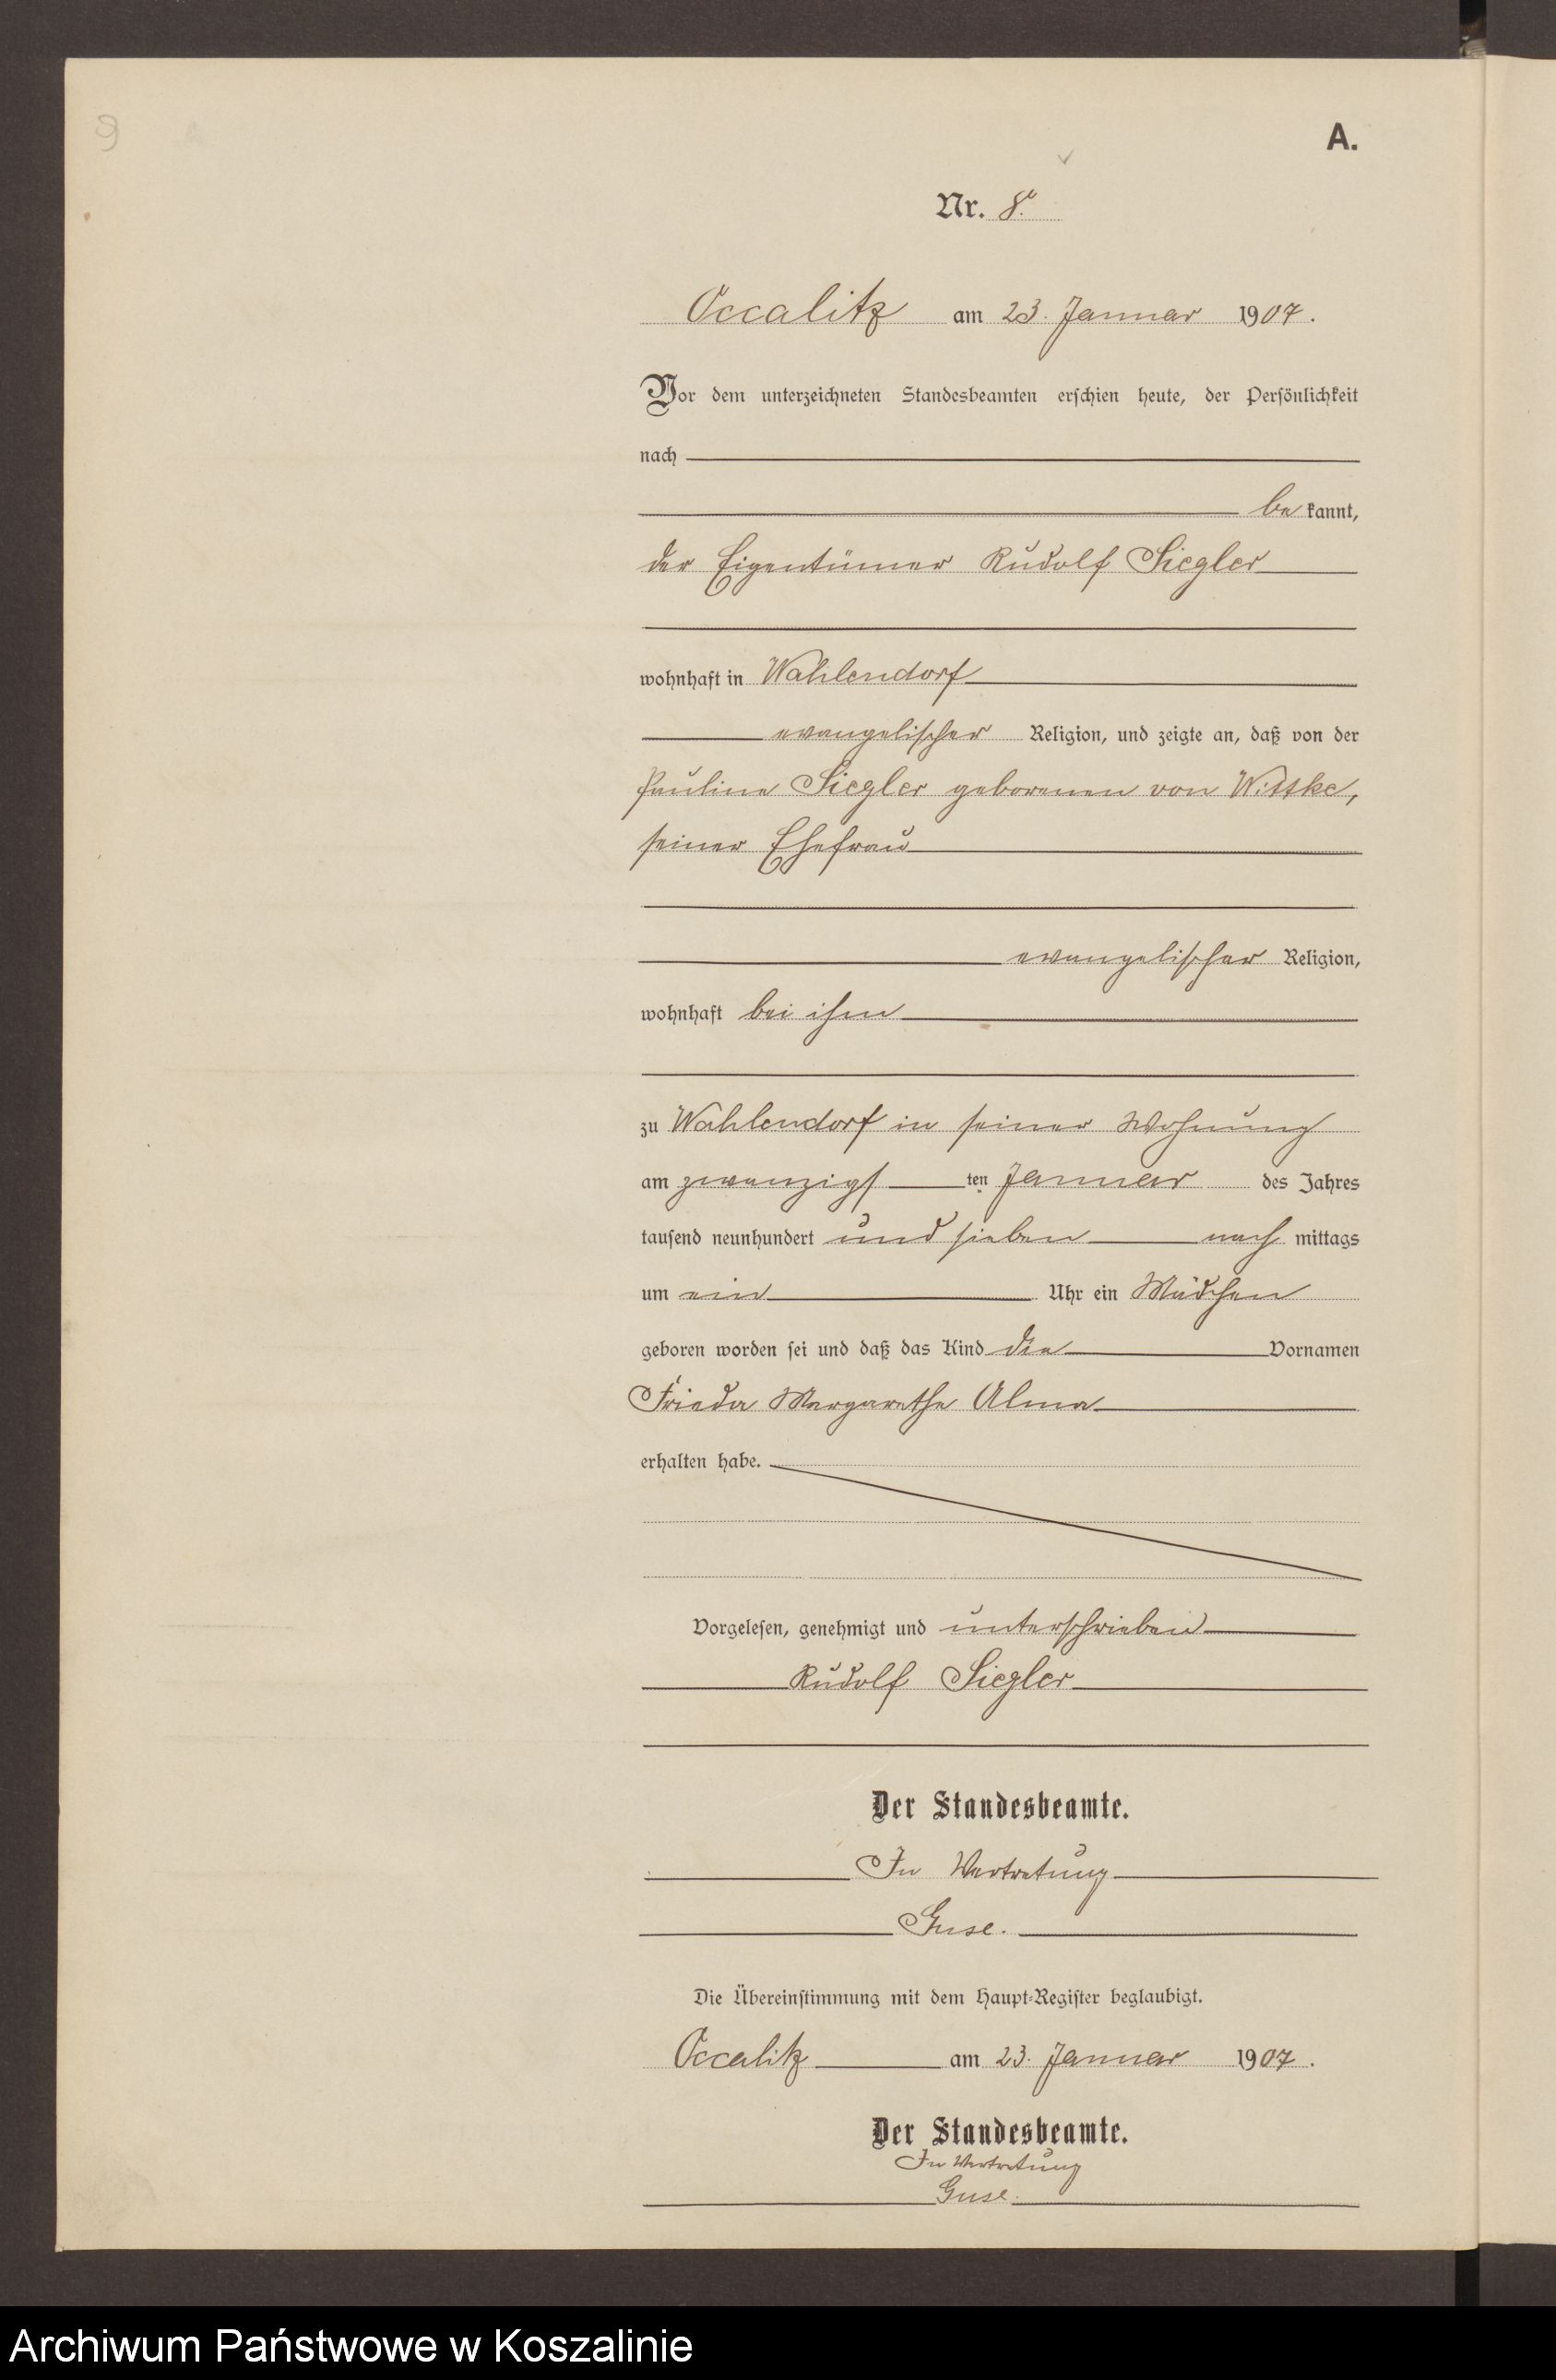 9
A.
Nr. 8.
Occalitz am 23. Januar 1907.
Vor dem unterzeichneten Standesbeamten erschien heute, der Persönlichkeit
nach
be kannt,
der Eigentümer Rudolf Siegler
wohnhaft in Wahlendorf
evangelischer Religion, und zeigte an, daß von der
Pauline Siegler geborenen von Wittke,
seiner Ehefrau
evangelischer Religion,
wohnhaft bei ihm
zu Wahlendorf in seiner Wohnung
am zwanzigs ten Januar des Jahres
tausend neunhundert und sieben nach mittags
um ein Uhr ein Mädchen
geboren worden sei und daß das Kind die Vornamen
Frieda Margarethe Alma
erhalten habe.
Vorgelesen, genehmigt und unterschrieben
Rudolf Siegler
Der Standesbeamte.
In Vertretung
Guse.
Die Übereinstimmung mit dem Haupt-Register beglaubigt.
Occalitz am 23. Januar 1907.
Der Standesbeamte.
In Vertretung
Guse.
Archiwum Państwowe w Koszalinie